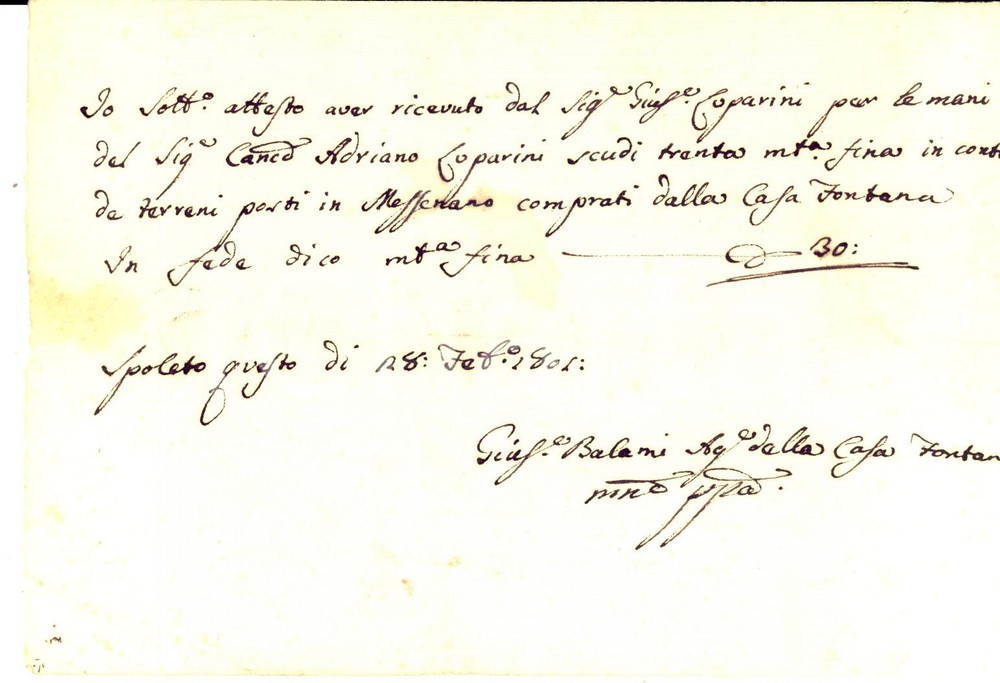 Io Sott.º attesto aver ricevuto dal Sig.e Gius.e Coparini per le mani
del Sig.e Canc.e Adriano Coparini scudi trenta mt.a fina in cont
de terreni posti in Messenano comprati dalla Casa Fontana
In fede dico mt.a fina ——— 30:
Spoleto questo di 28: Feb.º 1801:
Gius.e Balami Ag.e della Casa Fontan
mno ppa.